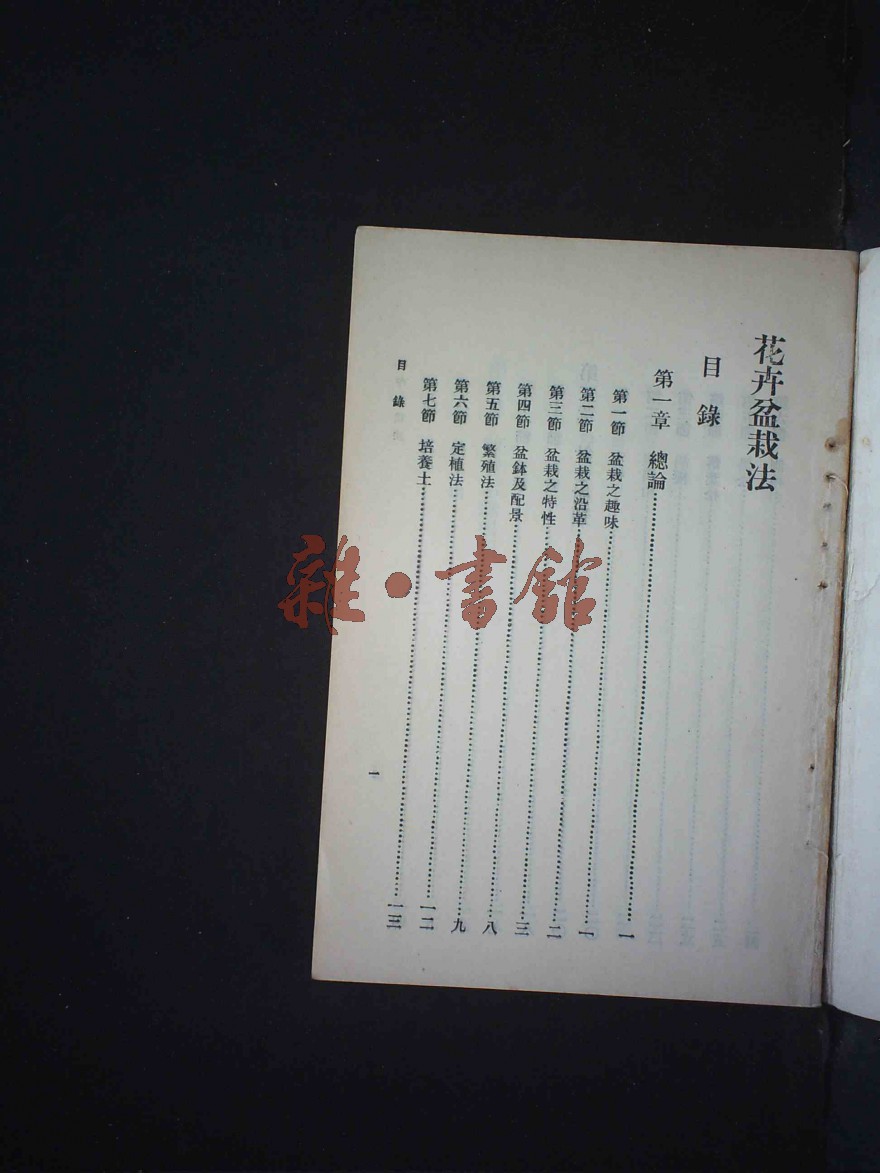 花卉盆栽法
目錄
第一章 總論……一
第一節 盆栽之趣味……一
第二節 盆栽之沿革……二
第三節 盆栽之特性……三
第四節 盆鉢及配景……八
第五節 繁殖法……九
第六節 定植法……一二
第七節 培養土……一三
目錄
一
雜·書館